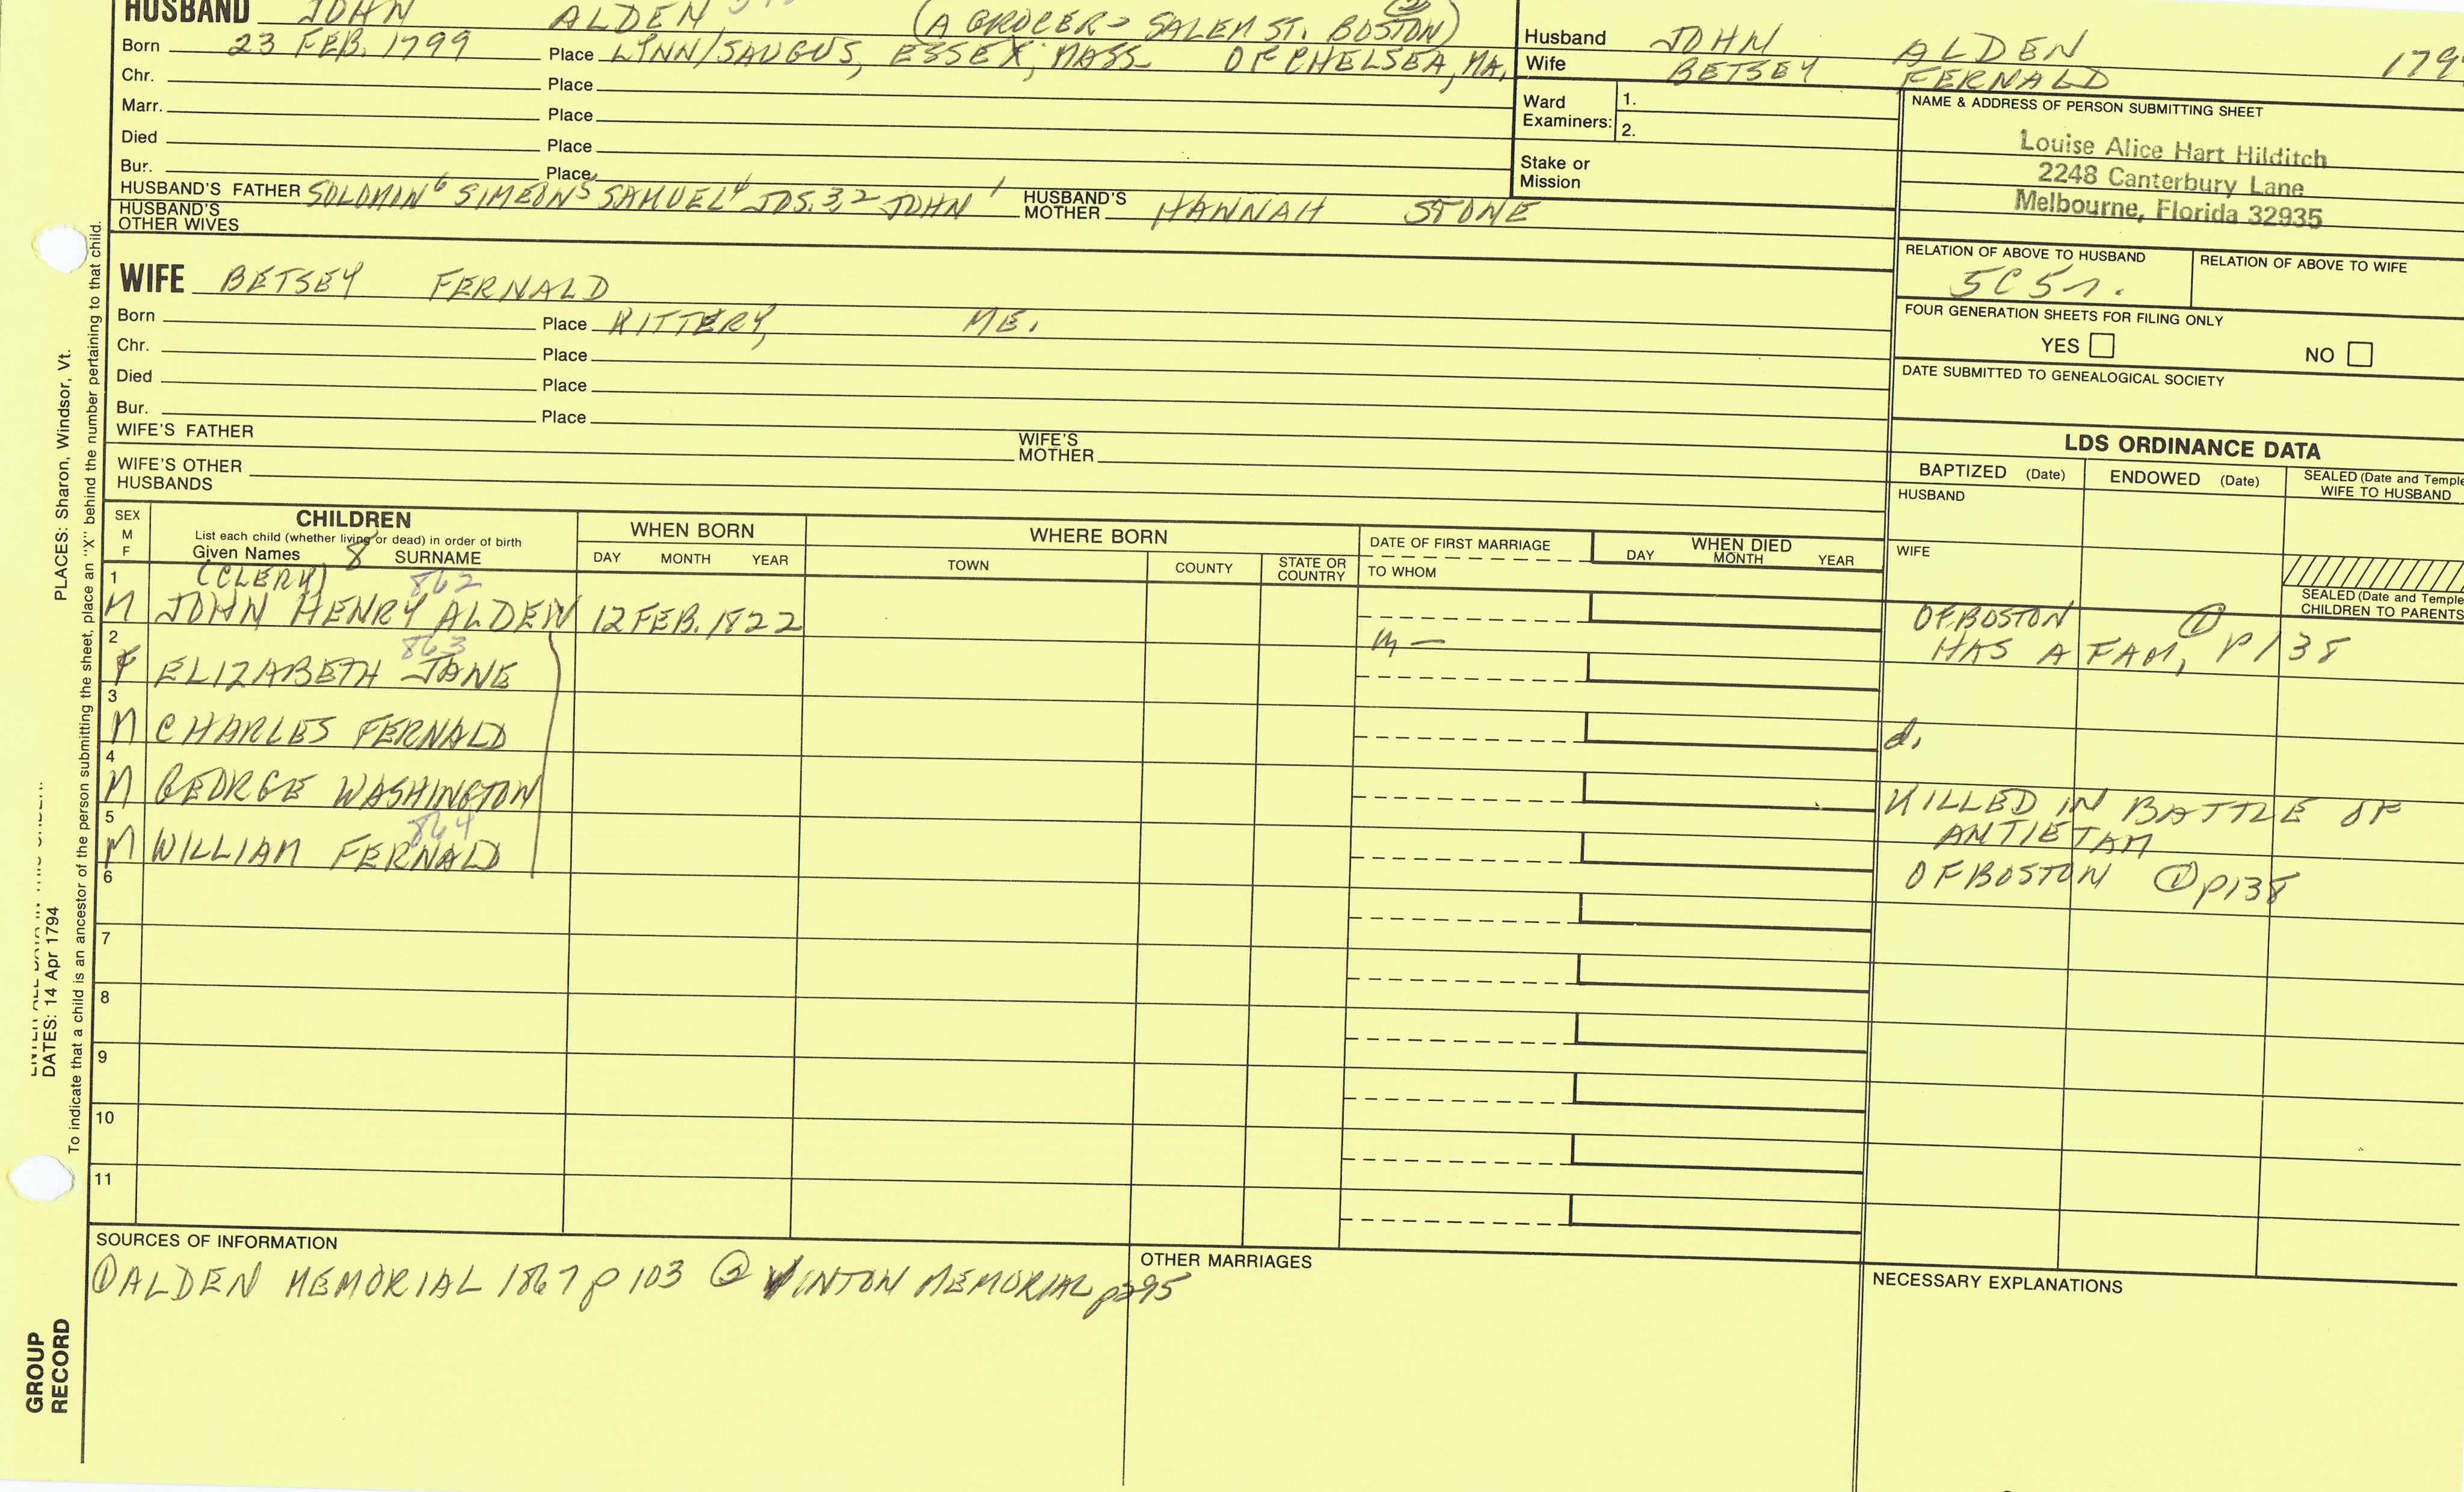 HUSBAND JOHN ALDEN (A GROCER - SALEM ST. BOSTON) (2)
Born 23 FEB. 1799 Place LYNN/SAUGUS, ESSEX, MASS. OF CHELSEA, MA.
Chr. Place
Marr. Place
Died Place
Bur. Place
HUSBAND'S FATHER SOLOMIN 6 SIMEON 5 SAMUEL 4 JOS. 3,2 JOHN 1 HUSBAND'S MOTHER HANNAH STONE
HUSBAND'S OTHER WIVES
WIFE BETSEY FERNALD
Born Place KITTERY, ME.
Chr. Place
Died Place
Bur. Place
WIFE'S FATHER WIFE'S MOTHER
WIFE'S OTHER HUSBANDS
Husband JOHN ALDEN 179
Wife BETSEY FERNALD
Ward Examiners: 1.
2.
Stake or Mission
NAME & ADDRESS OF PERSON SUBMITTING SHEET
Louise Alice Hart Hilditch
2248 Canterbury Lane
Melbourne, Florida 32935
RELATION OF ABOVE TO HUSBAND RELATION OF ABOVE TO WIFE
5C5r.
FOUR GENERATION SHEETS FOR FILING ONLY
YES NO
DATE SUBMITTED TO GENEALOGICAL SOCIETY
LDS ORDINANCE DATA
BAPTIZED (Date) ENDOWED (Date) SEALED (Date and Temple
WIFE TO HUSBAND
HUSBAND
WIFE
SEALED (Date and Temple
CHILDREN TO PARENTS
SEX
M
F
CHILDREN
List each child (whether living or dead) in order of birth
Given Names 8 SURNAME
WHEN BORN
DAY MONTH YEAR
WHERE BORN
TOWN COUNTY STATE OR COUNTRY
DATE OF FIRST MARRIAGE
TO WHOM
WHEN DIED
DAY MONTH YEAR
1 (CLERK) 862
M JOHN HENRY ALDEN 12 FEB. 1822 OF BOSTON ①
m — HAS A FAM, P138
2 863
F ELIZABETH JANE
3
M CHARLES FERNALD d.
4
M GEORGE WASHINGTON KILLED IN BATTLE OF
ANTIETAM
5 864
M WILLIAM FERNALD OF BOSTON ① p138
6
7
8
9
10
11
SOURCES OF INFORMATION
① ALDEN MEMORIAL 1867 p 103 ② VINTON MEMORIAL p295
OTHER MARRIAGES
NECESSARY EXPLANATIONS
PLACES: Sharon, Windsor, Vt.
DATES: 14 Apr 1794
To indicate that a child is an ancestor of the person submitting the sheet, place an "X" behind the number pertaining to that child.
GROUP
RECORD